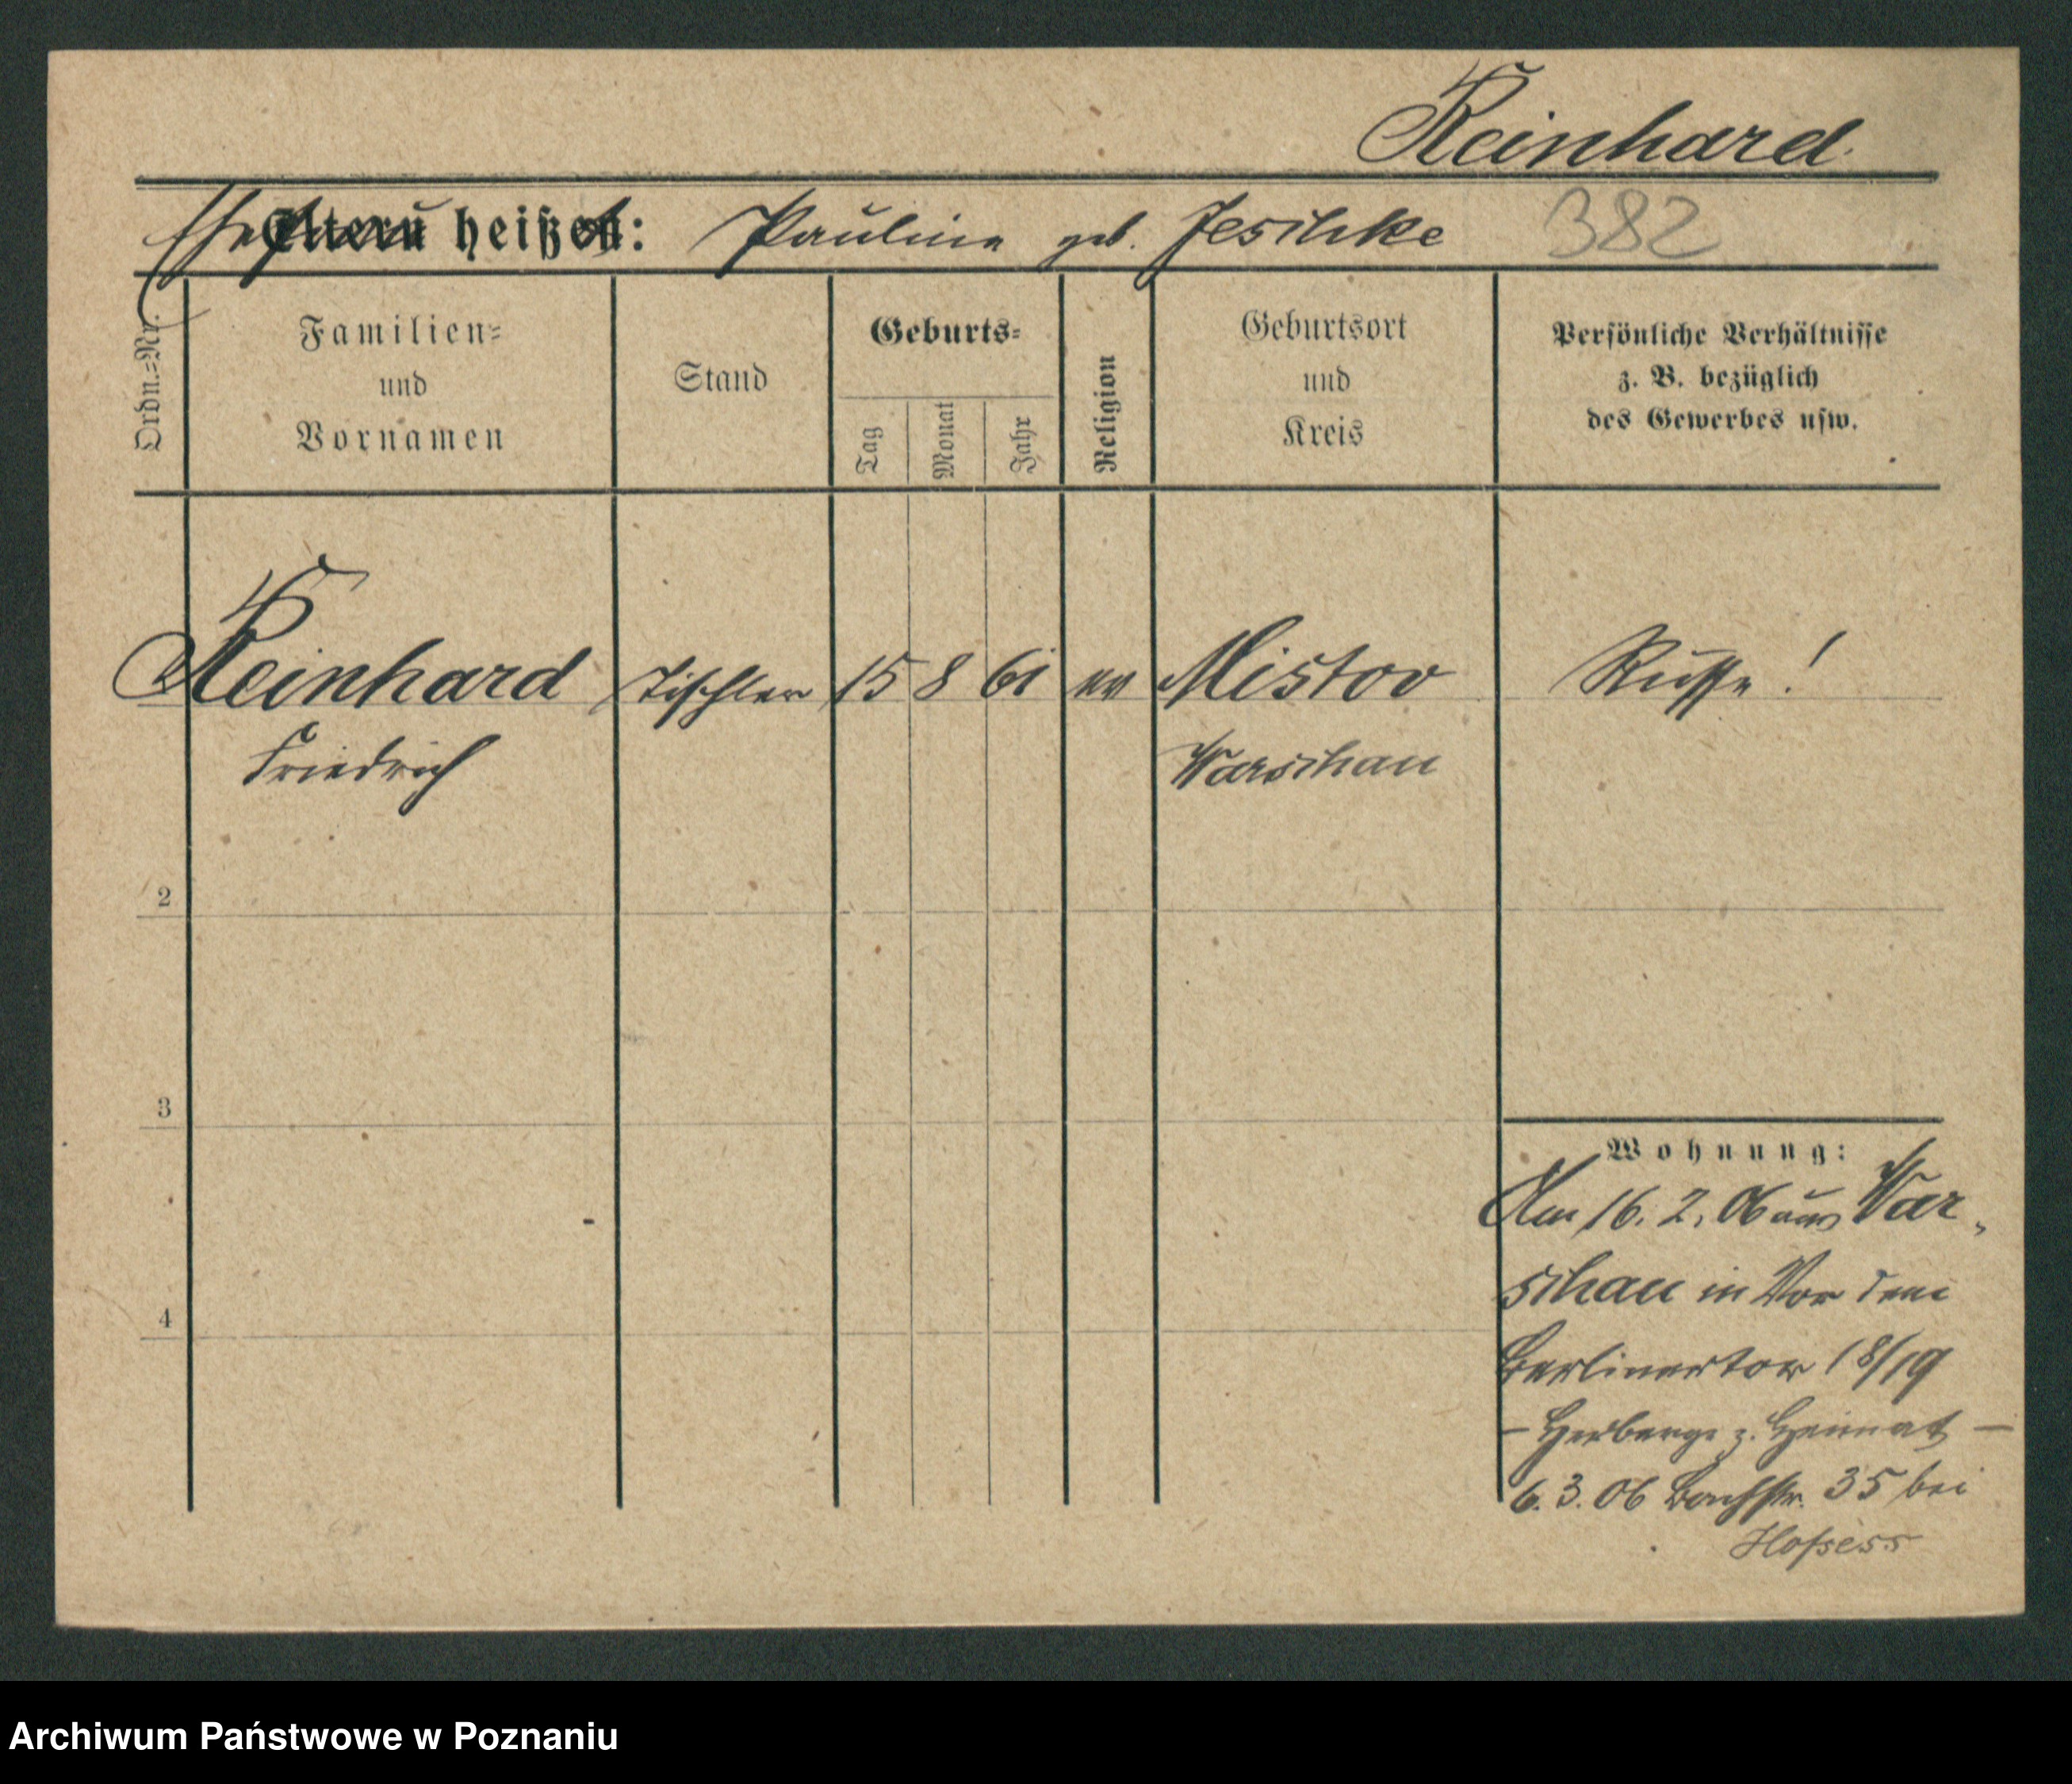 Reinhard.
Ehefrau heißt: Pauline geb. Jeschke 382
Ordn.=Nr.
Familien=
und
Vornamen
Stand
Geburts=
Tag
Monat
Jahr
Religion
Geburtsort
und
Kreis
Persönliche Verhältnisse
z. B. bezüglich
des Gewerbes usw.
Reinhard Tischler 15 8 61 ev Mistov Russe!
Friedrich Warschau
2
3
4
Wohnung:
Am 16. 2. 06 aus War-
schau in Vor dem
Berlinertor 18/19
- Herberge z. Heimat -
6. 3. 06 Bachstr. 35 bei
Archiwum Państwowe w Poznaniu